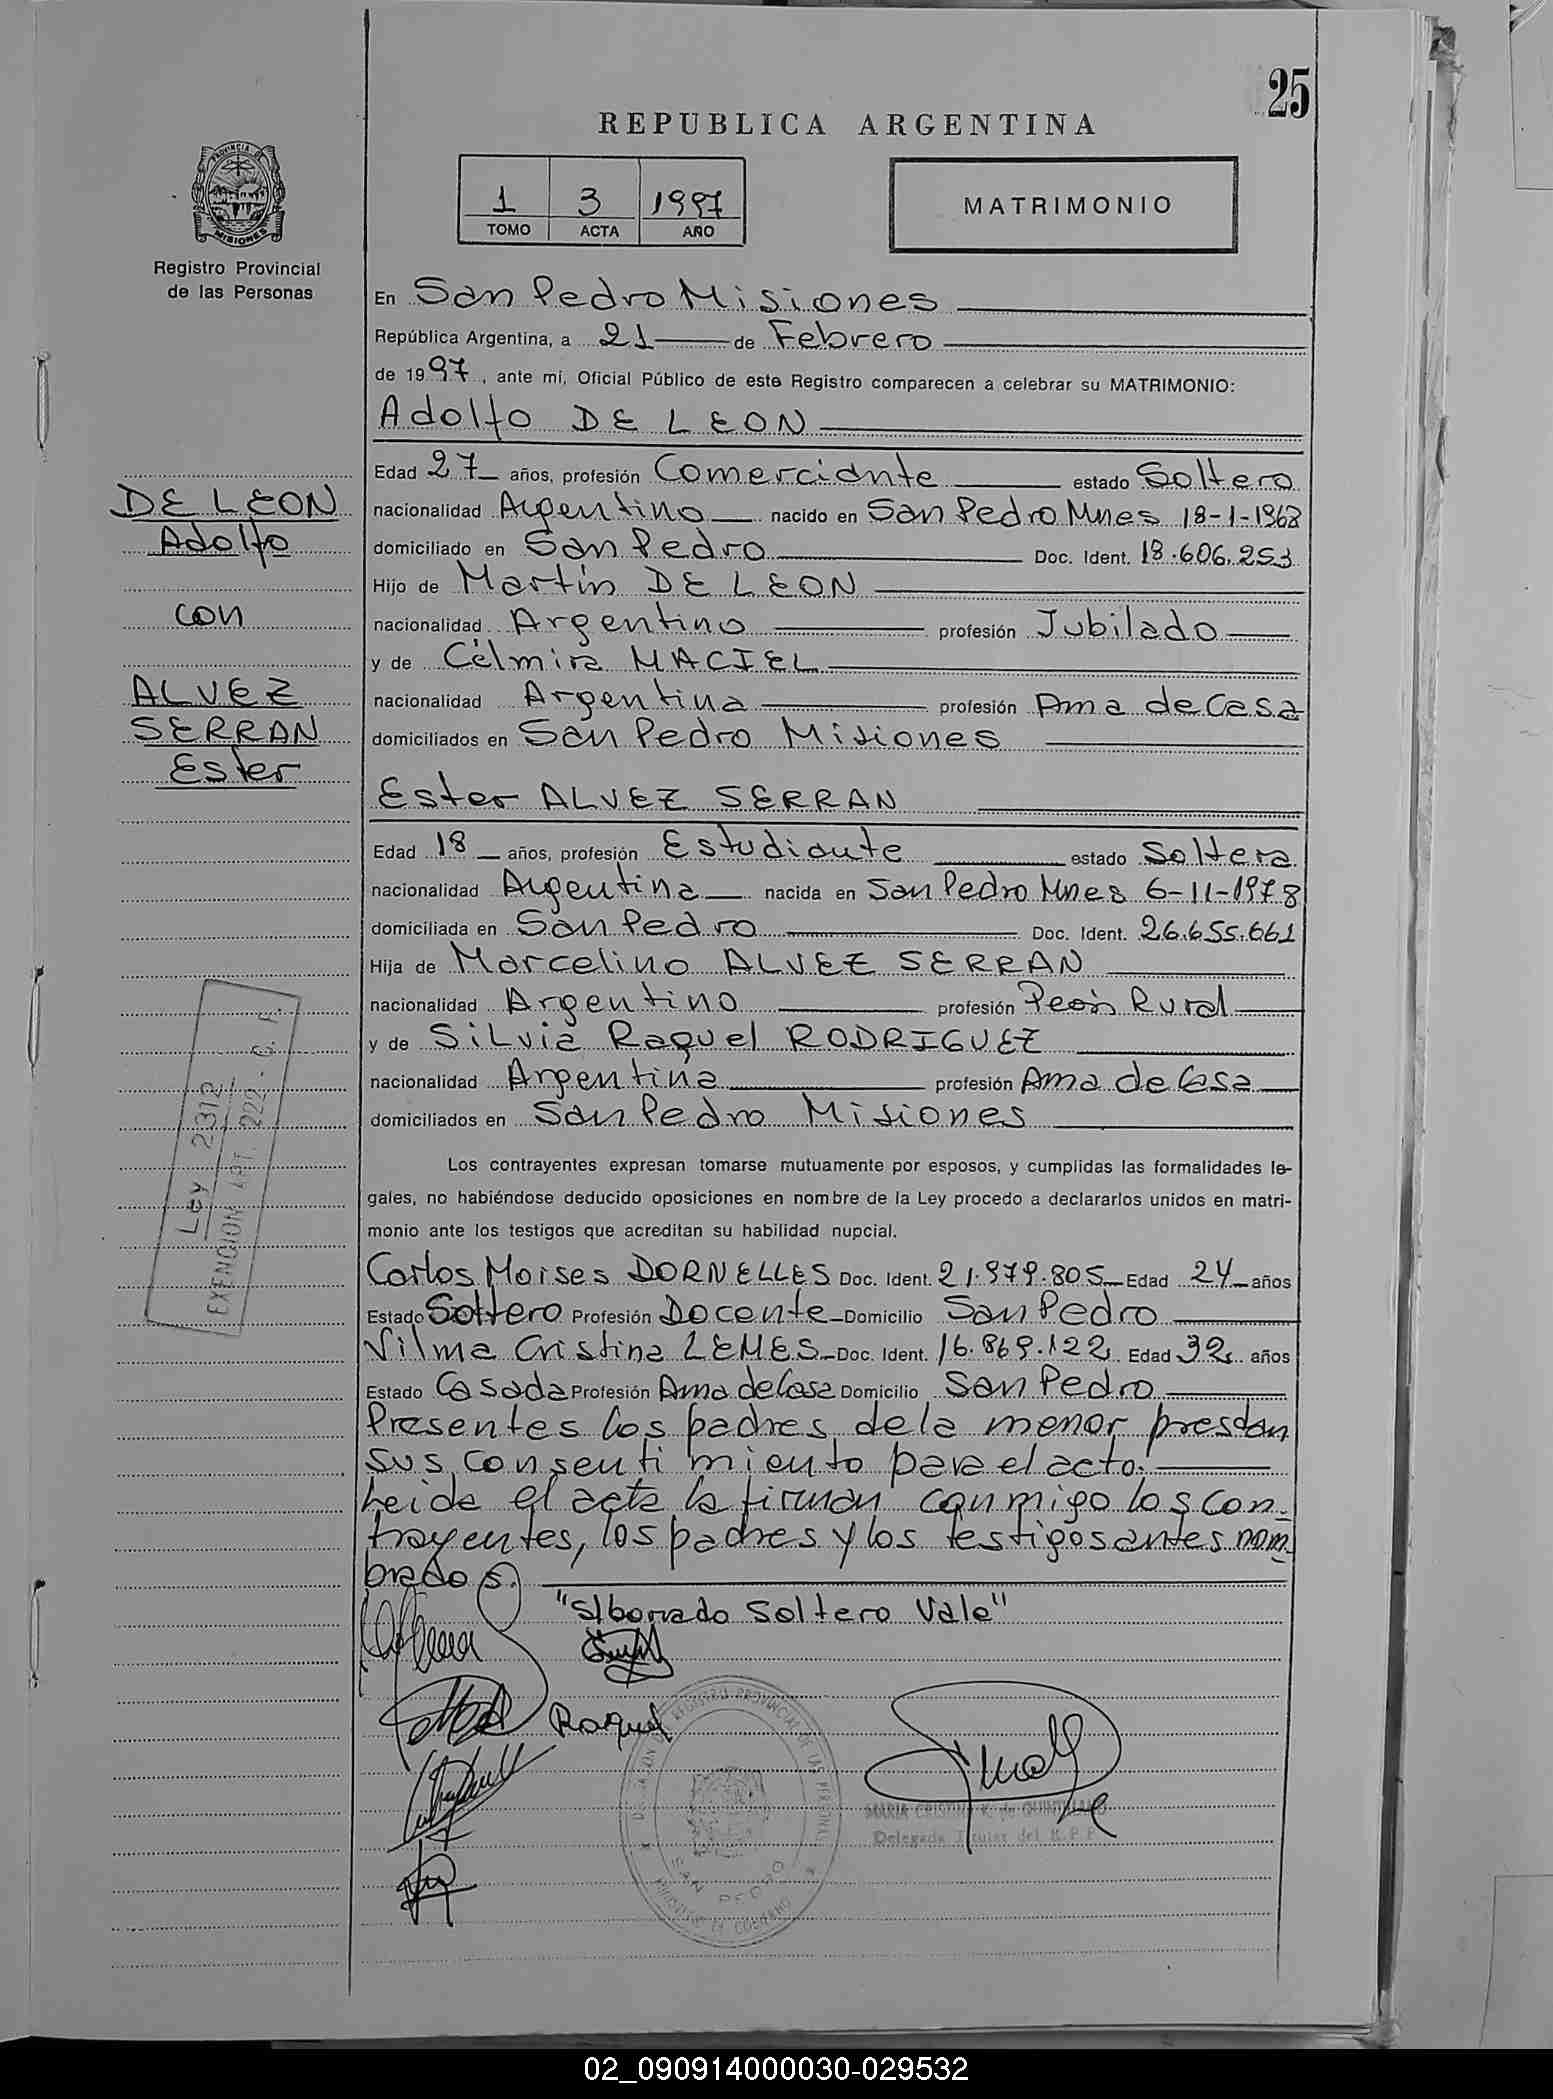 25
REPUBLICA ARGENTINA
1 3 1997
TOMO ACTA AÑO
MATRIMONIO
PROVINCIA DE
MISIONES
Registro Provincial
de las Personas
En San Pedro Misiones
República Argentina, a 21 de Febrero
de 1997, ante mí, Oficial Público de este Registro comparecen a celebrar su MATRIMONIO:
Adolfo DE LEON
Edad 27 años, profesión Comerciante estado Soltero
nacionalidad Argentino nacido en San Pedro Mnes 18-1-1968
domiciliado en San Pedro Doc. Ident. 18.606.253
Hijo de Martín DE LEON
nacionalidad Argentino profesión Jubilado
y de Célmira MACIEL
nacionalidad Argentina profesión Ama de Casa
domiciliados en San Pedro Misiones
Ester ALVEZ SERRAN
Edad 18 años, profesión Estudiante estado Soltera
nacionalidad Argentina nacida en San Pedro Mnes 6-11-1978
domiciliada en San Pedro Doc. Ident. 26.655.661
Hija de Marcelino ALVEZ SERRAN
nacionalidad Argentino profesión Peón Rural
y de Silvia Raquel RODRIGUEZ
nacionalidad Argentina profesión Ama de Casa
domiciliados en San Pedro Misiones
Los contrayentes expresan tomarse mutuamente por esposos, y cumplidas las formalidades le-
gales, no habiéndose deducido oposiciones en nombre de la Ley procedo a declararlos unidos en matri-
monio ante los testigos que acreditan su habilidad nupcial.
Carlos Moises DORNELLES Doc. Ident. 21.979.805 Edad 24 años
Estado Soltero Profesión Docente Domicilio San Pedro
Vilma Cristina LEMES Doc. Ident. 16.869.122 Edad 32 años
Estado Casada Profesión Ama de Casa Domicilio San Pedro
Presentes los padres de la menor prestan
sus consentimiento para el acto.
Leida el acta la firman conmigo los con-
trayentes, los padres y los testigos antes nom-
brados.
"S/borrado Soltero Vale"
Raquel
MARIA CRISTINA K. de QUINTILIANO
Delegada Titular del R.P.P.
SAN PEDRO
DE LEON
Adolfo
con
ALVEZ
SERRAN
Ester
Ley 2312
EXENCION ART. 222 - C. F.
02_090914000030-029532